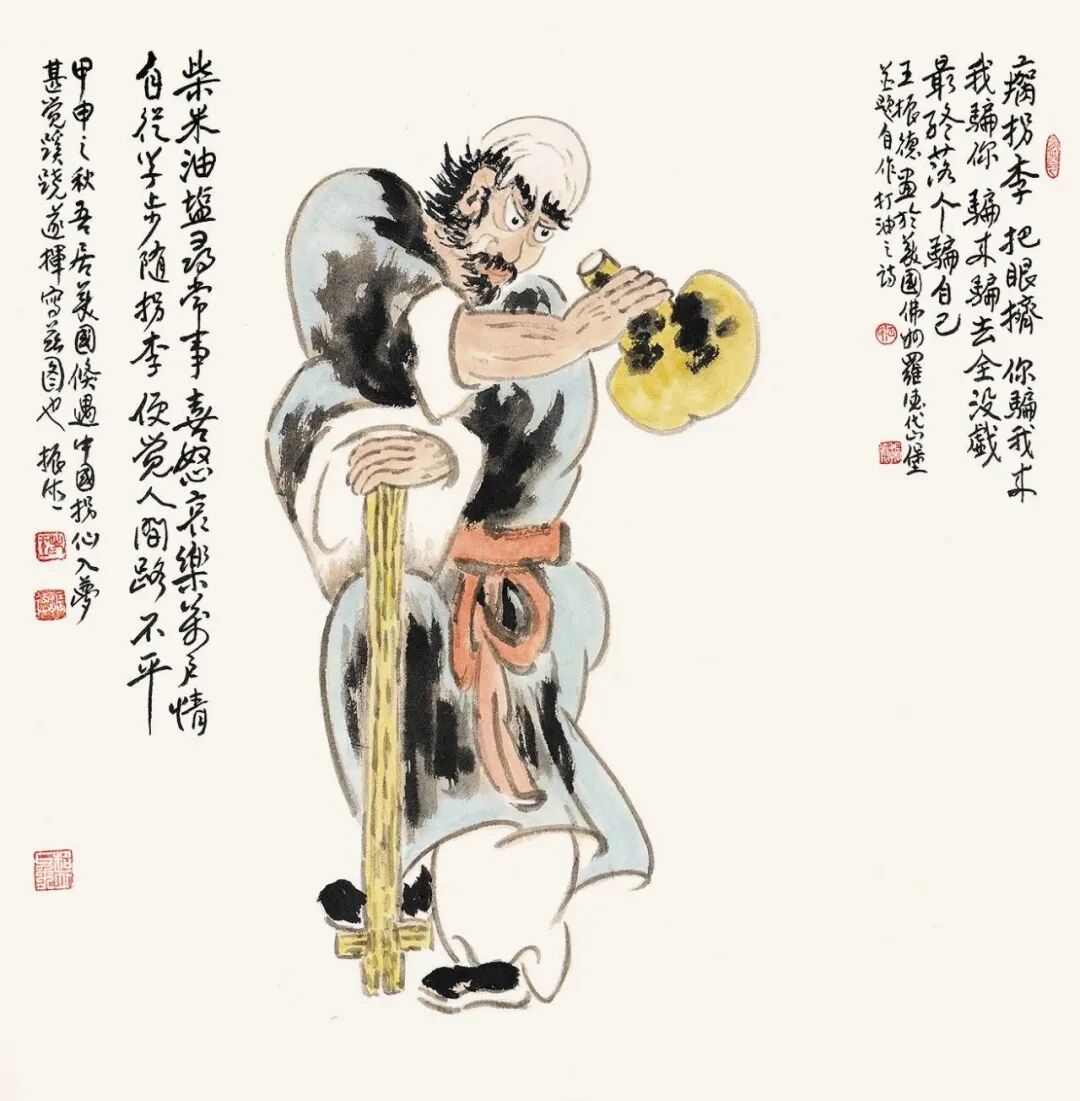 瘸拐李 把眼擠 你騙我来
我騙你 騙来騙去全没戲
最终落个騙自己
王振德畫於美國佛州羅德代尔堡
并題自作打油之詩
柴米油塩尋常事 喜怒哀樂萬户情
自從学步随拐李 便觉人間路不平
甲申之秋吾居美國倏遇中國拐仙入夢
甚觉蹊跷遂揮寫兹图也 振德